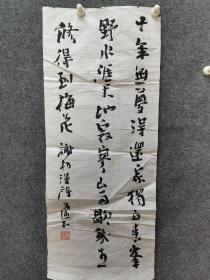 十年無夢得還家獨立青峰
野水涯天地寂寥山雨歇幾生
修得到梅花 謝枋得詩